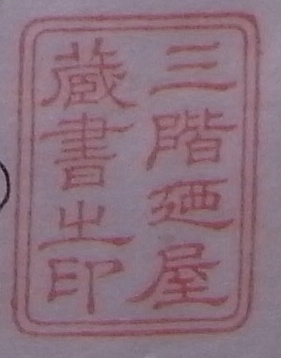 三階廼屋
蔵書之印